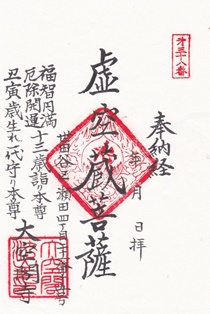 第三十八番
奉納経
年 月 日 拝
虚空蔵菩薩
世田谷区瀬田四丁目
福智円満
厄除開運 十三歳詣り本尊
丑寅歳生れ一代守り本尊
大空閣寺